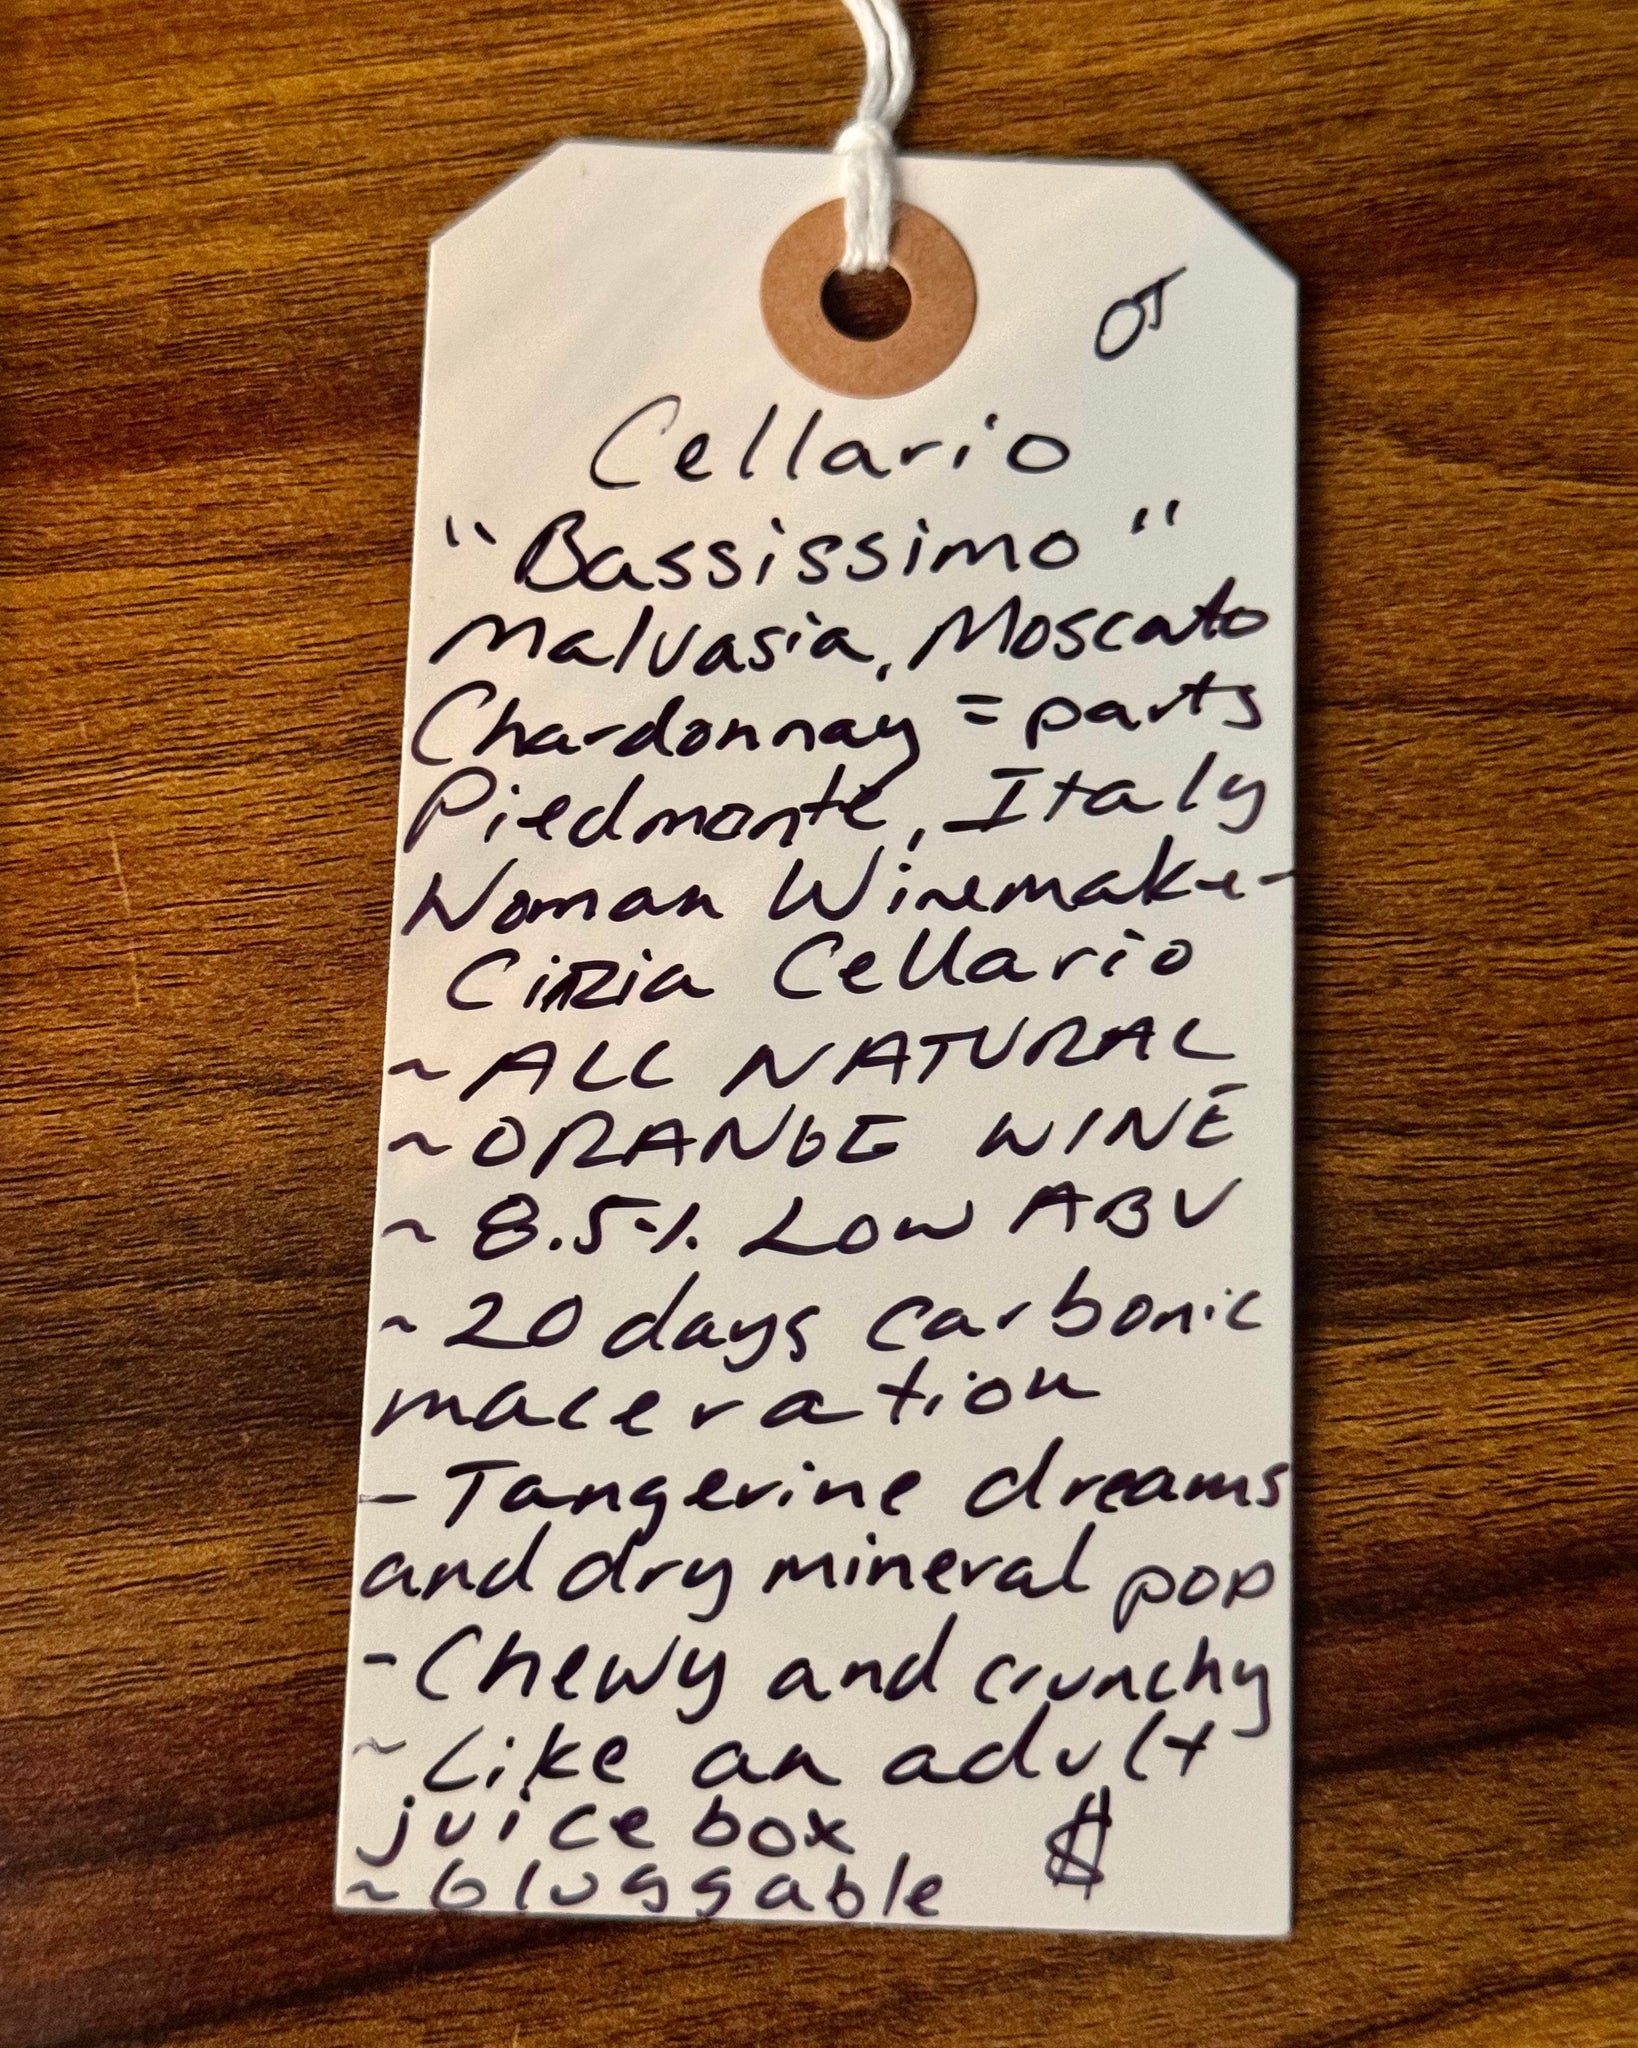 OJ
Cellario
"Bassissimo"
Malvasia, Moscato
Chardonnay = parts
Piedmonte, Italy
Woman Winemaker
Cinzia Cellario
~ ALL NATURAL
~ ORANGE WINE
~ 8.5% Low ABV
~ 20 days carbonic
maceration
- Tangerine dreams
and dry mineral pop
- Chewy and crunchy
~ Like an adult
juice box $
~ Gluggable